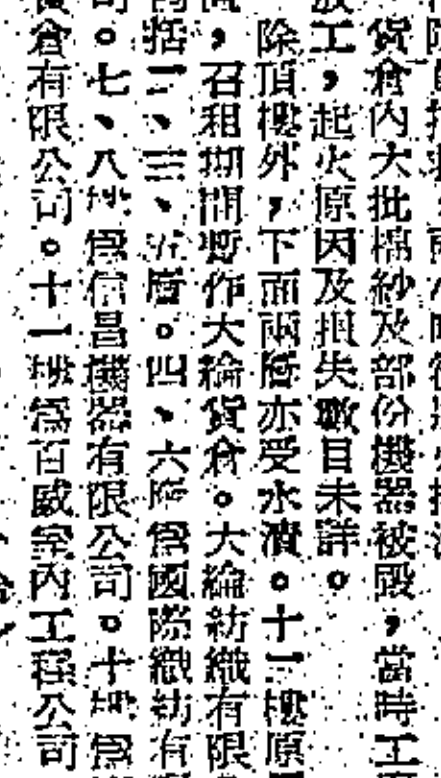 貨倉內大批棉紗及部份機器被毀，當時工
放工，起火原因及損失數目未詳。
除頂樓外，下面兩層亦受水漬。十二樓原
，召租期間暫作大綸貨倉。大綸紡織有限
括二、三、五層。四、六層爲國際織紡有
。七、八樓爲信昌機器有限公司。十樓爲
倉有限公司。十一樓爲百威室內工程公司